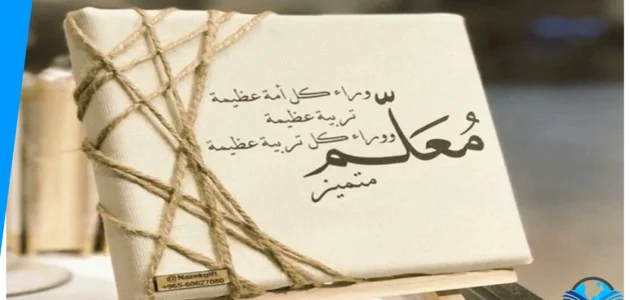 وراء كل أمة عظيمة
تربية عظيمة
ووراء كل تربية عظيمة
مُعَلّم
متميز
Nazekgift
+965-60627080